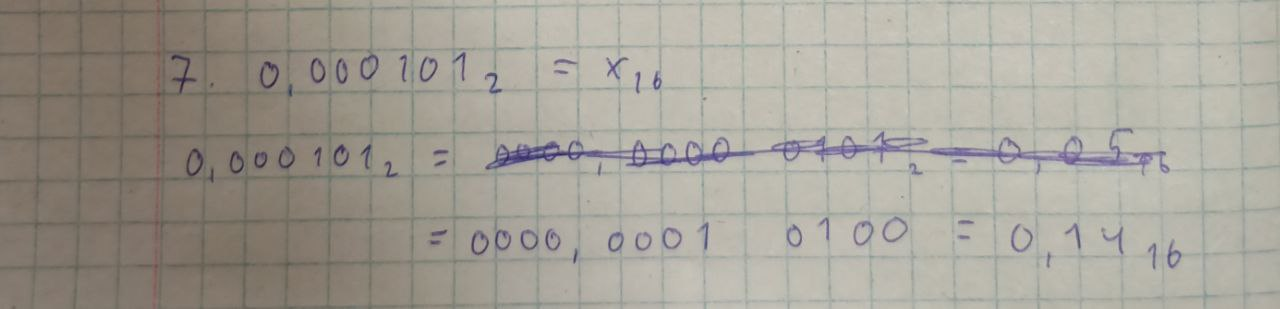 7. 0,000101₂ = x₁₆
0,000101₂ = 0000, 0000 0101₂ = 0,05₁₆
= 0000, 0001 0100 = 0,14₁₆